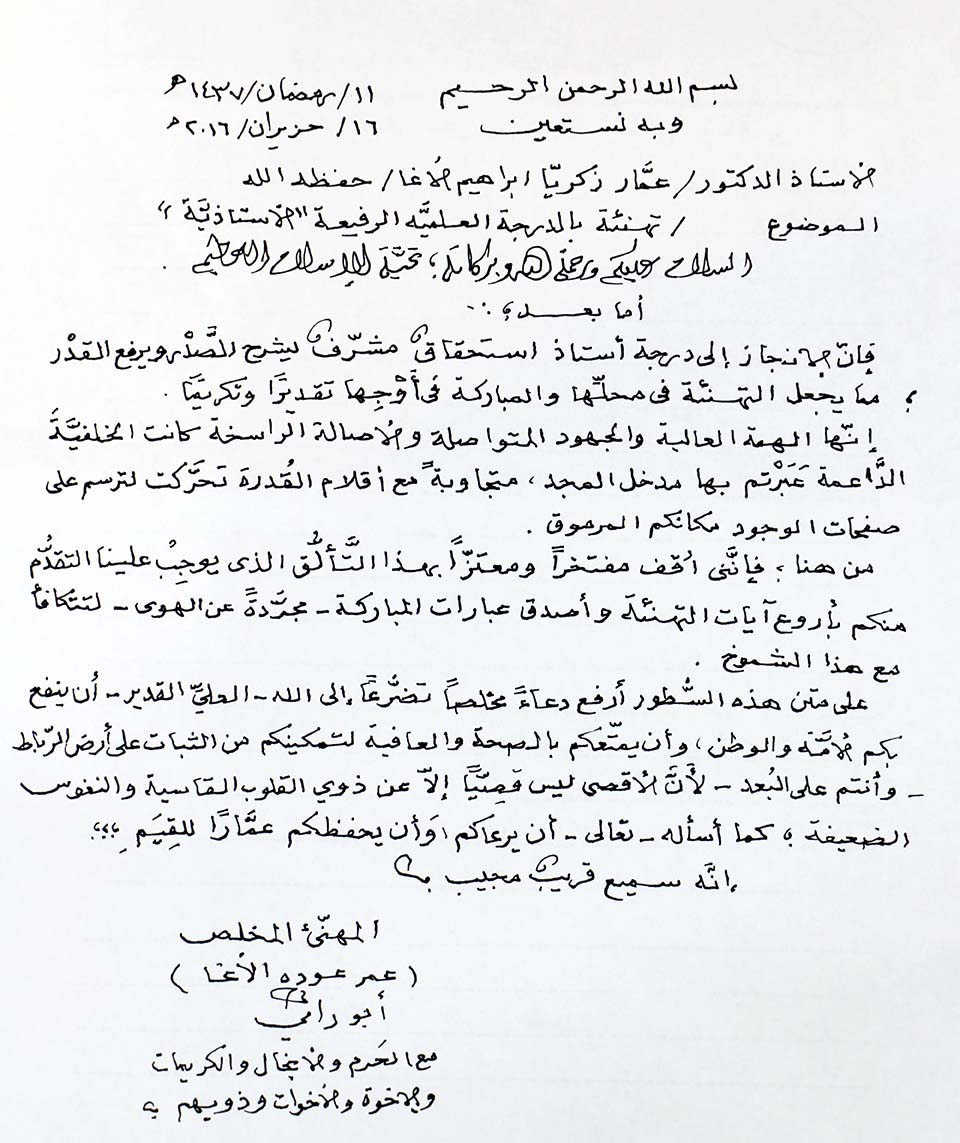 بسم الله الرحمن الرحيم ١١/رمضان/١٤٣٧هـ
وبه نستعين ١٦/ حزيران/٢٠١٦م
الأستاذ الدكتور/ عمَّار زكريّا ابراهيم الأغا/ حفظه الله
الموضوع / تهنئة بالدرجة العلميَّه الرفيعة "الأستاذيَّة"
السلام عليكم ورحمة الله وبركاته؛ تحيَّة الإسلام العظيم.
أما بعد؛..
فإنّ الإنجاز إلى درجة أستاذ استحقاقٌ مشرّفٌ يشرح الصَّدْر ويرفع القدْر
؛ مما يجعل التهنئة في محلّها والمباركة في أوْجِها تقديرًا وتكريمًا.
إنّها الهمة العالية والجهود المتواصلة والأصالة الراسخة كانت الخلفيَّةَ
الدَّاعمة عَبَرْتم بها مدخل المجد، متجاوبةً مع أقلام القُدرة تحرَّكت لترسم على
صفحات الوجود مكانكم المرموق.
من هنا؛ فإنَّني أقف مفتخراً ومعتزّاً بهذا التَّألُّق الذي يوجِبُ علينا التقدُّم
منكم بأروع آيات التهنئة وأصدق عبارات المباركة - مجرَّدةً عن الهوى - لتتكافأ
مع هذا الشموخ.
على متن هذه السُّطور أرفع دعاءً مخلصاً تضرُّعًا إلى الله - العليِّ القدير - أن ينفع
بكم الأمَّة والوطن، وأن يمتّعكم بالصحة والعافية لتمكينكم من الثبات على أرض الرّباط
- وأنتم على البُعد - لأنَّ الأقصى ليس قَصِيًّا إلاّ عن ذوي القلوب القاسية والنفوس
الضعيفة؛ كما أسأله - تعالى - أن يرعاكم وَأن يحفظكم عمَّارًا للقِيَمِ؛؛؛
إنَّه سميع قريبٌ مجيب
المهنّئ المخلص
(عمر عوده الأغا)
أبو رامي
مع الحَرم والأنجال والكريمات
والأخوة والأخوات وذويهم